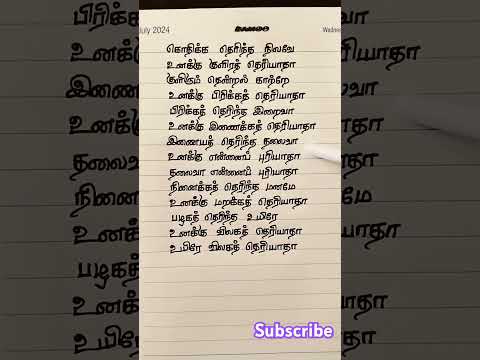 July 2024
BAMBOO
Wadne
கொதிக்க தெரிந்த நிலவே
உனக்கு குளிரத் தெரியாதா
குளிரும் தென்றல் காற்றே
உனக்கு பிரிக்கத் தெரியாதா
பிரிக்கத் தெரிந்த இறைவா
உனக்கு இணைக்கத் தெரியாதா
இணையத் தெரிந்த தலைவா
உனக்கு என்னைப் புரியாதா
தலைவா என்னைப் புரியாதா
நினைக்கத் தெரிந்த மனமே
உனக்கு மறக்கத் தெரியாதா
படிகத் தெரிந்த உயிரே
உனக்கு விலகத் தெரியாதா
உயிரே விலகத் தெரியாதா
Subscribe